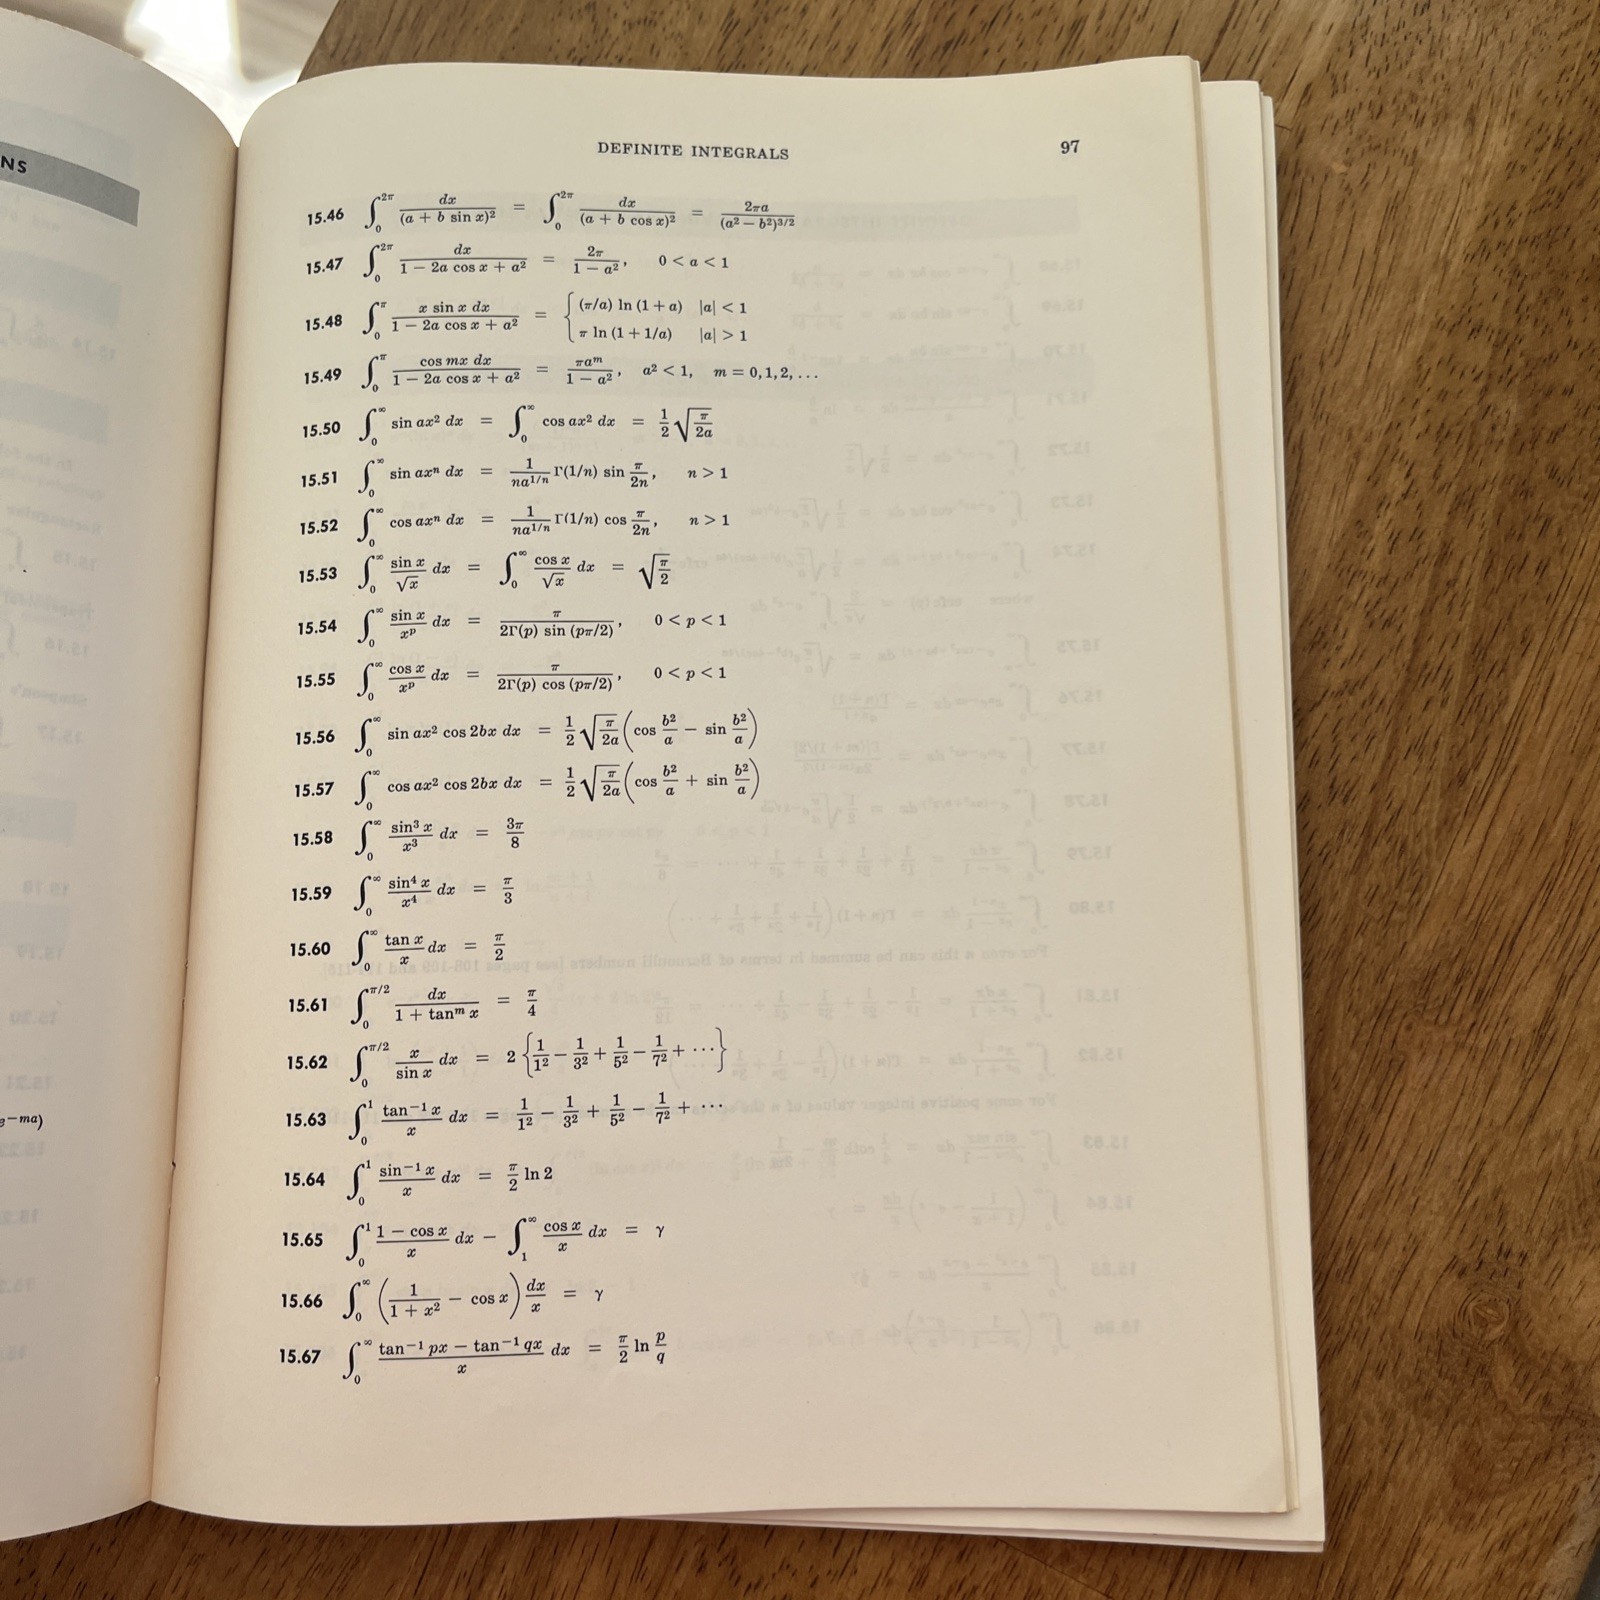 NS
DEFINITE INTEGRALS 97
15.46 ∫₀^{2π} dx/(a + b sin x)² = ∫₀^{2π} dx/(a + b cos x)² = 2πa/(a² − b²)^{3/2}
15.47 ∫₀^{2π} dx/(1 − 2a cos x + a²) = 2π/(1 − a²), 0 < a < 1
15.48 ∫₀^{π} x sin x dx/(1 − 2a cos x + a²) = { (π/a) ln (1 + a) |a| < 1
π ln (1 + 1/a) |a| > 1
15.49 ∫₀^{π} cos mx dx/(1 − 2a cos x + a²) = πa^m/(1 − a²), a² < 1, m = 0, 1, 2, ...
15.50 ∫₀^{∞} sin ax² dx = ∫₀^{∞} cos ax² dx = 1/2 √(π/2a)
15.51 ∫₀^{∞} sin axⁿ dx = 1/(na^{1/n}) Γ(1/n) sin π/2n, n > 1
15.52 ∫₀^{∞} cos axⁿ dx = 1/(na^{1/n}) Γ(1/n) cos π/2n, n > 1
15.53 ∫₀^{∞} sin x/√x dx = ∫₀^{∞} cos x/√x dx = √(π/2)
15.54 ∫₀^{∞} sin x/x^p dx = π/(2Γ(p) sin (pπ/2)), 0 < p < 1
15.55 ∫₀^{∞} cos x/x^p dx = π/(2Γ(p) cos (pπ/2)), 0 < p < 1
15.56 ∫₀^{∞} sin ax² cos 2bx dx = 1/2 √(π/2a) (cos b²/a − sin b²/a)
15.57 ∫₀^{∞} cos ax² cos 2bx dx = 1/2 √(π/2a) (cos b²/a + sin b²/a)
15.58 ∫₀^{∞} sin³ x/x³ dx = 3π/8
15.59 ∫₀^{∞} sin⁴ x/x⁴ dx = π/3
15.60 ∫₀^{∞} tan x/x dx = π/2
15.61 ∫₀^{π/2} dx/(1 + tan^m x) = π/4
15.62 ∫₀^{π/2} x/sin x dx = 2 {1/1² − 1/3² + 1/5² − 1/7² + ⋯}
15.63 ∫₀^{1} tan⁻¹ x/x dx = 1/1² − 1/3² + 1/5² − 1/7² + ⋯
15.64 ∫₀^{1} sin⁻¹ x/x dx = π/2 ln 2
15.65 ∫₀^{1} (1 − cos x)/x dx − ∫₁^{∞} cos x/x dx = γ
15.66 ∫₀^{∞} (1/(1 + x²) − cos x) dx/x = γ
15.67 ∫₀^{∞} (tan⁻¹ px − tan⁻¹ qx)/x dx = π/2 ln p/q